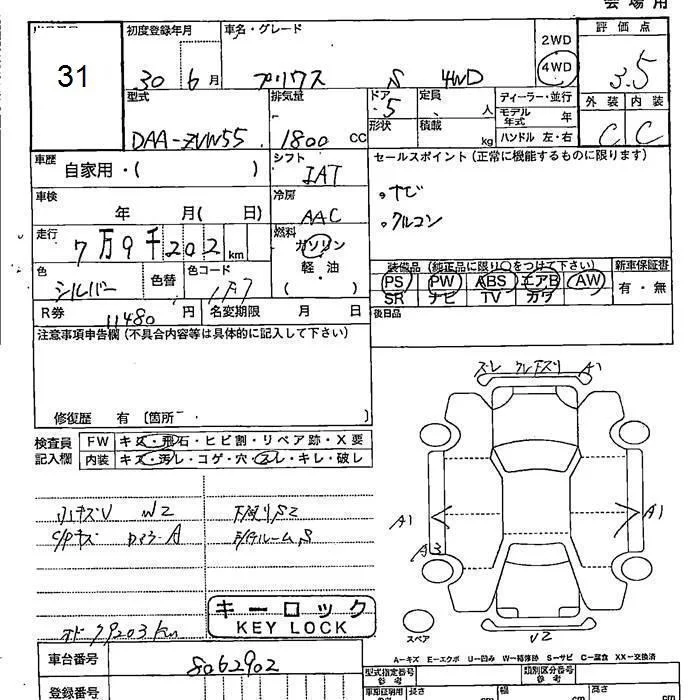 会場用
31
初度登録年月
30 6月
車名・グレード
プリウス S 4WD
2WD
4WD
評価点
3.5
型式
DAA-ZVW55
排気量
1800 cc
ドア 5
形状
定員 人
積載 kg
ディーラー・並行
モデル年式 年
ハンドル 左・右
外装 内装
C C
車歴
自家用・( )
シフト
IAT
セールスポイント(正常に機能するものに限ります)
ナビ
クルコン
車検
年 月( 日)
冷房
AAC
走行
7万9千202km
燃料
ガソリン
軽・油
( )
色
シルバー
色替
色コード
1F7
装備品(純正品に限り○をつけて下さい)
PS PW ABS エアB AW
SR ナビ TV カワ
新車保証書
有・無
R券 11480円
名変期限 月 日
後日品
注意事項申告欄(不具合内容等は具体的に記入して下さい)
修復歴 有〔箇所 〕
検査員記入欄
FW キズ・飛石・ヒビ割・リペア跡・X要
内装 キズ・汚レ・コゲ・穴・スレ・キレ・破レ
小キズV W2
下廻りS2
オド79203km
キーロック
KEY LOCK
ズレ A1
A1
A3
A1
V2
スペア
A=キズ E=エクボ U=凹み W=補修跡 S=サビ C=腐食 XX=交換済
車台番号
8062902
登録番号
型式指定番号
参考
類別区分番号
参考
長さ cm
幅 cm
高さ cm